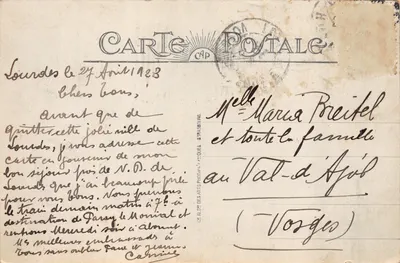 CARTE POSTALE
CAP
Lourdes le 27 Août 1923
Chers tous,
Avant que de
quitter cette jolie ville de
Lourdes, je vous adresse cette
carte en souvenir de mon
bon séjour près de N. D. de
Lourdes que j'ai beaucoup prié
pour vous tous. Nous prenons
le train demain matin à 7h à
destination de Paray le Monial et
rentrons Mercredi soir
Mes meilleures embrassades à
vous sans oublier
Melle Maria Breitel
et toute la famille
au Val-d'Ajol
(Vosges)